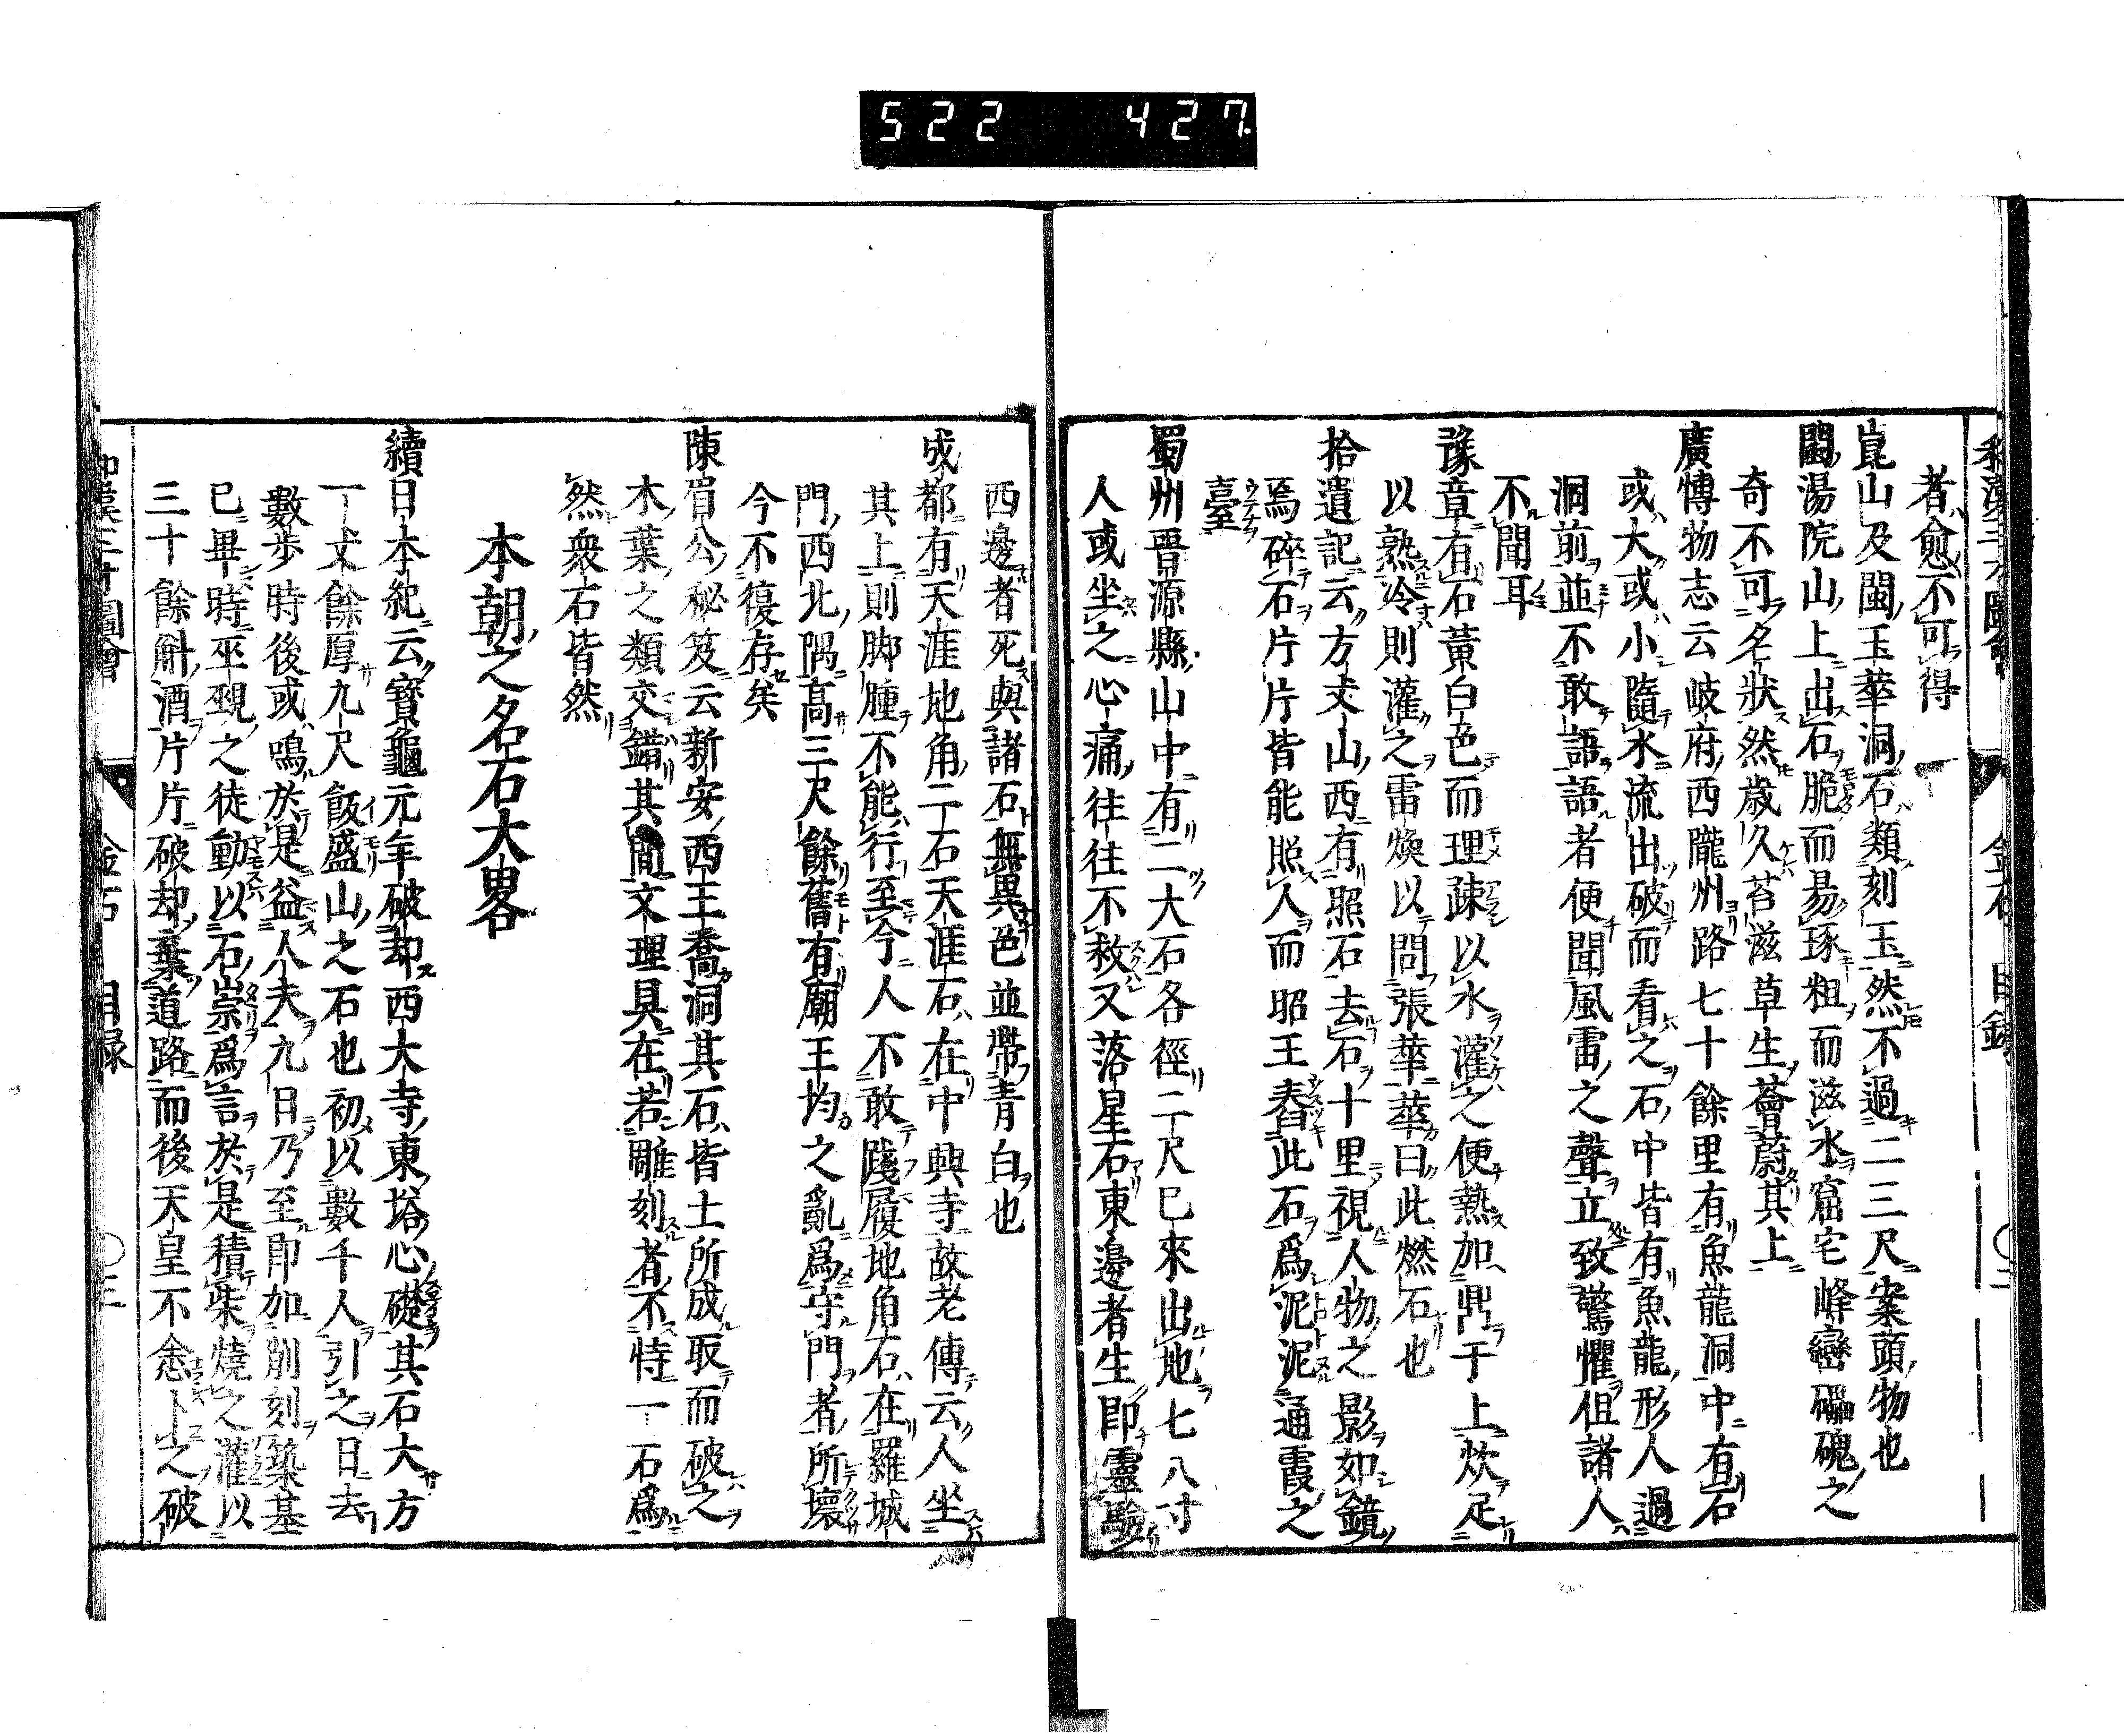 522 427.
者愈不可得
崑山及閩玉華洞石類刻玉然不過二三尺案頭物也
閩湯院山上出石脆而易琢粗而滋水窟宅峰巒礧磈之
奇不可名狀然歳久苔滋草生薈蔚其上
廣愽物志云岐府西隴州路七十餘里有魚龍洞中有石
或大或小隨水流出破而看之石中皆有魚龍形人過
洞前並不敢語語者便聞風雷之聲立致驚懼但諸人
不聞耳
豫章有石黃白色而理疎以水灌之便熱加鼎于上炊足
以熟冷則灌之雷煥以問張華華曰此燃石也
拾遺記云方丈山西有照石去石十里視人物之影如鏡
焉碎石片片皆能照人而昭王舂此石爲泥泥通霞之
臺
蜀州晋源縣山中有二大石各徑二尺巳來出地七八寸
人或坐之心痛往往不救又落星石東邊者生即靈驗
西邊者死與諸石無異色並帶青白也
成都有天涯地角二石天涯石在中興寺故老傳云人坐
其上則脚腫不能行至今人不敢踐履地角石在羅城
門西北隅高三尺餘舊有廟王均之亂爲守門者所壞
今不復存矣
陳眉公秘笈云新安西王喬洞其石皆土所成取而破之
木葉之類交錯其間文理具在若雕刻者不特一石爲
然衆石皆然
本朝之名石大畧
續日本紀云寳龜元年破却西大寺東塔心礎其石大方
一丈餘厚九尺飯盛山之石也初以數千人引之日去
數歩時後或鳴於是益人夫九日乃至即加削刻築基
巳畢時巫覡之徒動以石祟爲言於是積柴燒之灌以
三十餘斛酒片片破却棄道路而後天皇不悆卜之破
和漢三才圖會
金石 目録
〇三